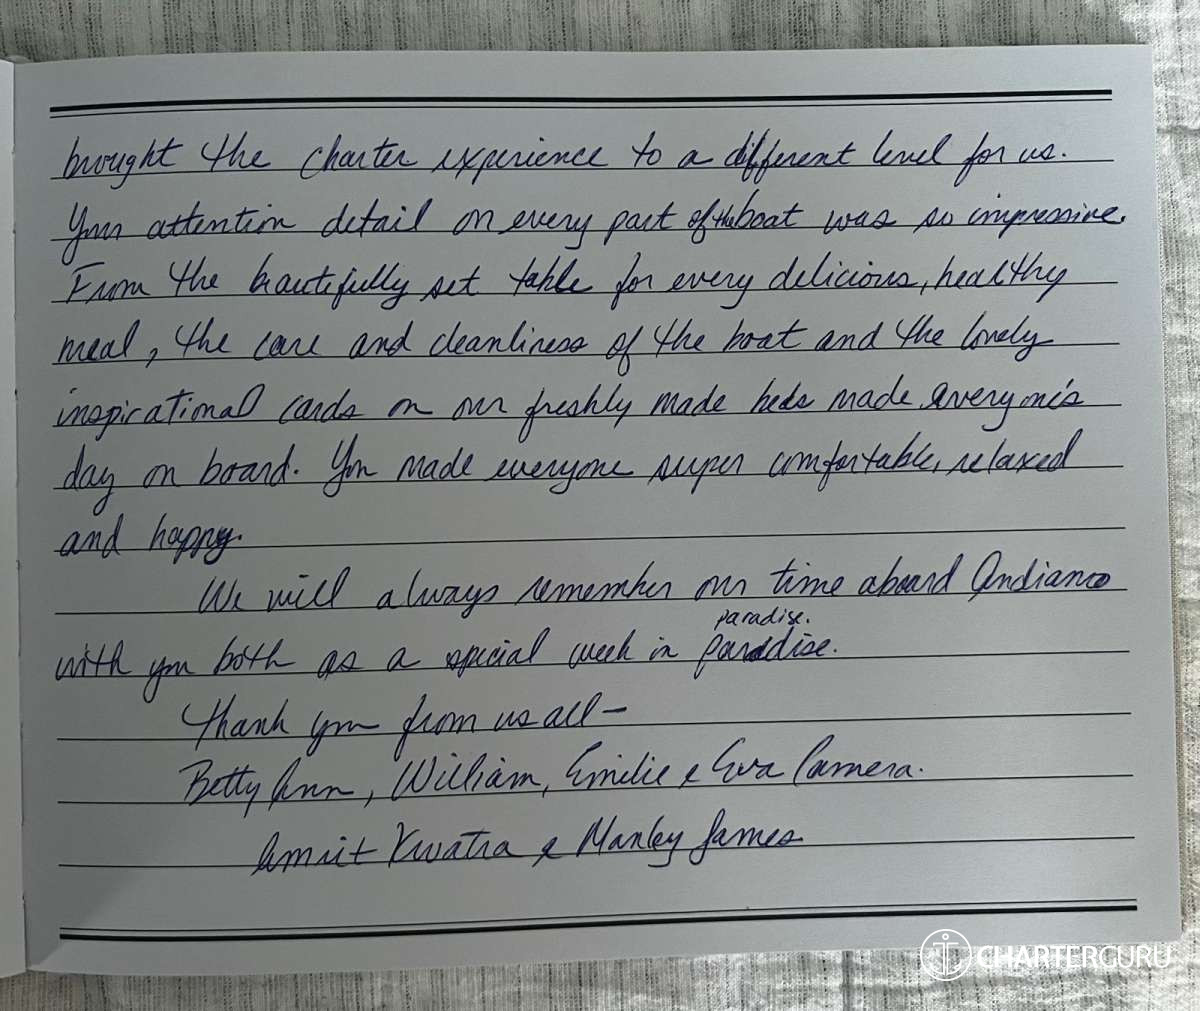 brought the charter experience to a different level for us.
Your attention detail on every part of the boat was so impressive.
From the beautifully set table for every delicious, healthy
meal, the care and cleanliness of the boat and the lovely
inspirational cards on our freshly made beds made everyone's
day on board. You made everyone super comfortable, relaxed
and happy.
We will always remember our time aboard Andiamo
paradise.
with you both as a special week in paradise.
Thank you from us all –
Betty Ann, William, Emilie & Eva Camera.
Amrit Kwatra & Manley James
CHARTERGURU